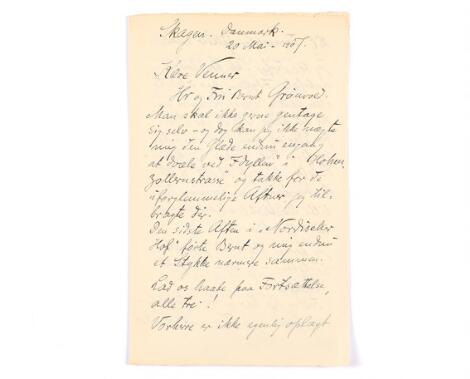 Skagen. Danmark.
20 Mai - 1907.
Kære Venner
Hr og Fru Bernt Grönvold.
Man skal ikke gerne gentage
sig selv - og dog kan jeg ikke nægte
mig den Glæde endnu engang
at dvæle ved "Idyllen" i "Hohen-
zollernstrasse" og takke for de
uforglemmelige Aftner jeg til-
bragte der.
Den sidste Aften i "Nordischer
Hof" førte Bernt og mig endnu
et Stykke nærmere sammen.
Lad os haabe paa Fortsættelse,
alle tre!
Vorherre er ikke egenlig oplagt